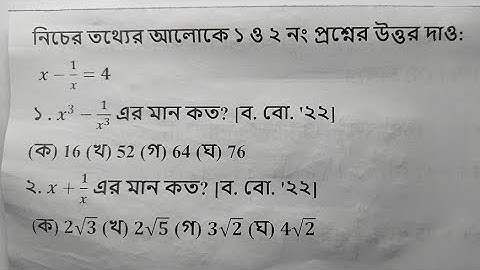 নিচের তথ্যের আলোকে ১ ও ২ নং প্রশ্নের উত্তর দাও:
x − 1/x = 4
১. x³ − 1/x³ এর মান কত? [ব. বো. '২২]
(ক) 16 (খ) 52 (গ) 64 (ঘ) 76
২. x + 1/x এর মান কত? [ব. বো. '২২]
(ক) 2√3 (খ) 2√5 (গ) 3√2 (ঘ) 4√2